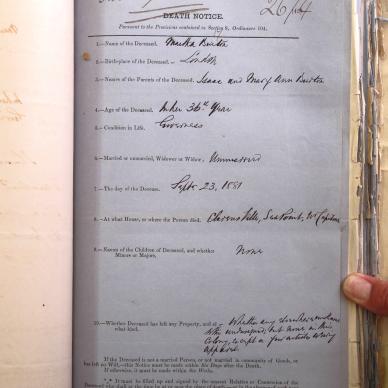 26
DEATH NOTICE.
Pursuant to the Provisions contained in Section 9, Ordinance 104.
1.—Name of the Deceased. Martha Burton
2.—Birth-place of the Deceased. London
3.—Names of the Parents of the Deceased. Isaac and Mary Ann Burton
4.—Age of the Deceased. In her 36th Year
5.—Condition in Life. Governess
6.—Married or unmarried, Widower or Widow. Unmarried
7.—The day of the Decease. Septr 23, 1881
8.—At what House, or where the Person died. Clarens Ville, Sea Point, Nr Capetown
9.—Names of the Children of Deceased, and whether Minors or Majors. None
10.—Whether Deceased has left any Property, and of what kind. Whether any elsewhere is unknown to the undersigned, but none in this Colony except a few articles of wearing apparel
If the Deceased is not a married Person, or not married in community of Goods, or
has left no Will,—this Notice must be made within Six Days after the Death.
If otherwise, it must be made within Six Weeks.
*** It must be filled up and signed by the nearest Relation or Connexion of the